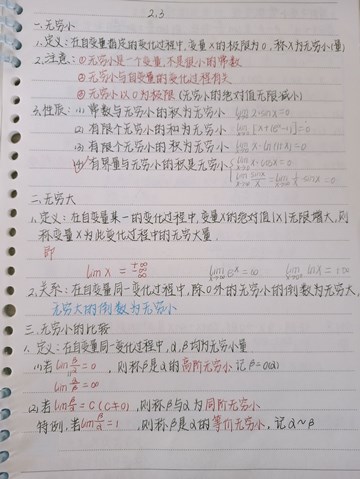 2.3
一.无穷小
1.定义:在自变量指定的变化过程中,变量X的极限为0,称X为无穷小(量)
2.注意:①无穷小是一个变量,不是很小的常数
②无穷小与自变量的变化过程有关
③无穷小以0为极限(无穷小的绝对值无限减小)
3.性质:(1)常数与无穷小的积为无穷小
(2)有限个无穷小的和为无穷小
(3)有限个无穷小的积为无穷小
(4)有界量与无穷小的积是无穷小
二.无穷大
1.定义:在自变量某一的变化过程中,变量X的绝对值|X|无限增大,则
称变量X为此变化过程中的无穷大量.
即
lim X =
2.关系:在自变量同一变化过程中,除0外的无穷小的倒数为无穷大,
无穷大的倒数为无穷小
三.无穷小的比较
1.定义:在自变量同一变化过程中,α,β均为无穷小量
(1)若lim β/α = 0 ,则称β是α的高阶无穷小 记β=0(α)
lim α/β = ∞
(2)若lim β/α = C (C≠0),则称β与α为同阶无穷小
特例,若lim β/α = 1 ,则称β是α的等价无穷小,记α~β